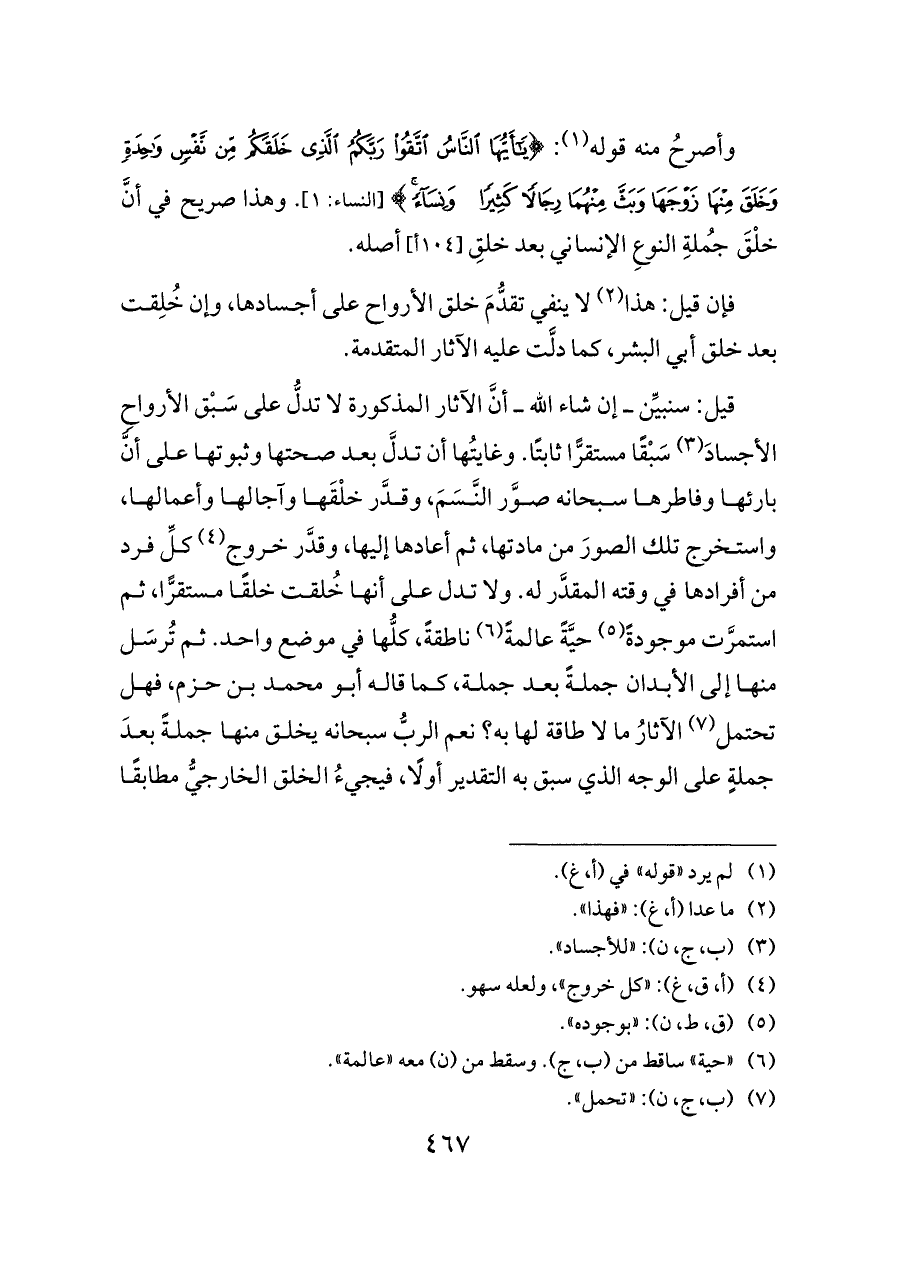 وأصرحُ منه قوله(١): ﴿يَٰٓأَيُّهَا ٱلنَّاسُ ٱتَّقُوا۟ رَبَّكُمُ ٱلَّذِى خَلَقَكُم مِّن نَّفْسٍ وَٰحِدَةٍ
وَخَلَقَ مِنْهَا زَوْجَهَا وَبَثَّ مِنْهُمَا رِجَالًا كَثِيرًا وَنِسَآءً ۚ﴾ [النساء: ١]. وهذا صريح في أنَّ
خلْقَ جُملةِ النوعِ الإنساني بعد خلقِ [١٠٤أ] أصله.
فإن قيل: هذا(٢) لا ينفي تقدُّمَ خلق الأرواح على أجسادها، وإن خُلِقت
بعد خلق أبي البشر، كما دلَّت عليه الآثار المتقدمة.
قيل: سنبيِّن ـ إن شاء الله ـ أنَّ الآثار المذكورة لا تدلُّ على سَبْق الأرواحِ
الأجسادَ(٣) سَبْقًا مستقرًّا ثابتًا. وغايتُها أن تدلَّ بعد صحتها وثبوتها على أنَّ
بارئها وفاطرها سبحانه صوَّر النَّسَمَ، وقدَّر خلْقَها وآجالها وأعمالها،
واستخرج تلك الصورَ من مادتها، ثم أعادها إليها، وقدَّر خروج(٤) كلِّ فرد
من أفرادها في وقته المقدَّر له. ولا تدل على أنها خُلقت خلقًا مستقرًّا، ثم
استمرَّت موجودةً(٥) حيَّةً عالمةً(٦) ناطقةً، كلُّها في موضع واحد. ثم تُرسَل
منها إلى الأبدان جملةً بعد جملة، كما قاله أبو محمد بن حزم، فهل
تحتمل(٧) الآثارُ ما لا طاقة لها به؟ نعم الربُّ سبحانه يخلق منها جملةً بعدَ
جملةٍ على الوجه الذي سبق به التقدير أولًا، فيجيءُ الخلق الخارجيُّ مطابقًا
(١) لم يرد «قوله» في (أ، غ).
(٢) ما عدا (أ، غ): «فهذا».
(٣) (ب، ج، ن): «للأجساد».
(٤) (أ، ق، غ): «كل خروج»، ولعله سهو.
(٥) (ق، ط، ن): «بوجوده».
(٦) «حية» ساقط من (ب، ج). وسقط من (ن) معه «عالمة».
(٧) (ب، ج، ن): «تحمل».
٤٦٧